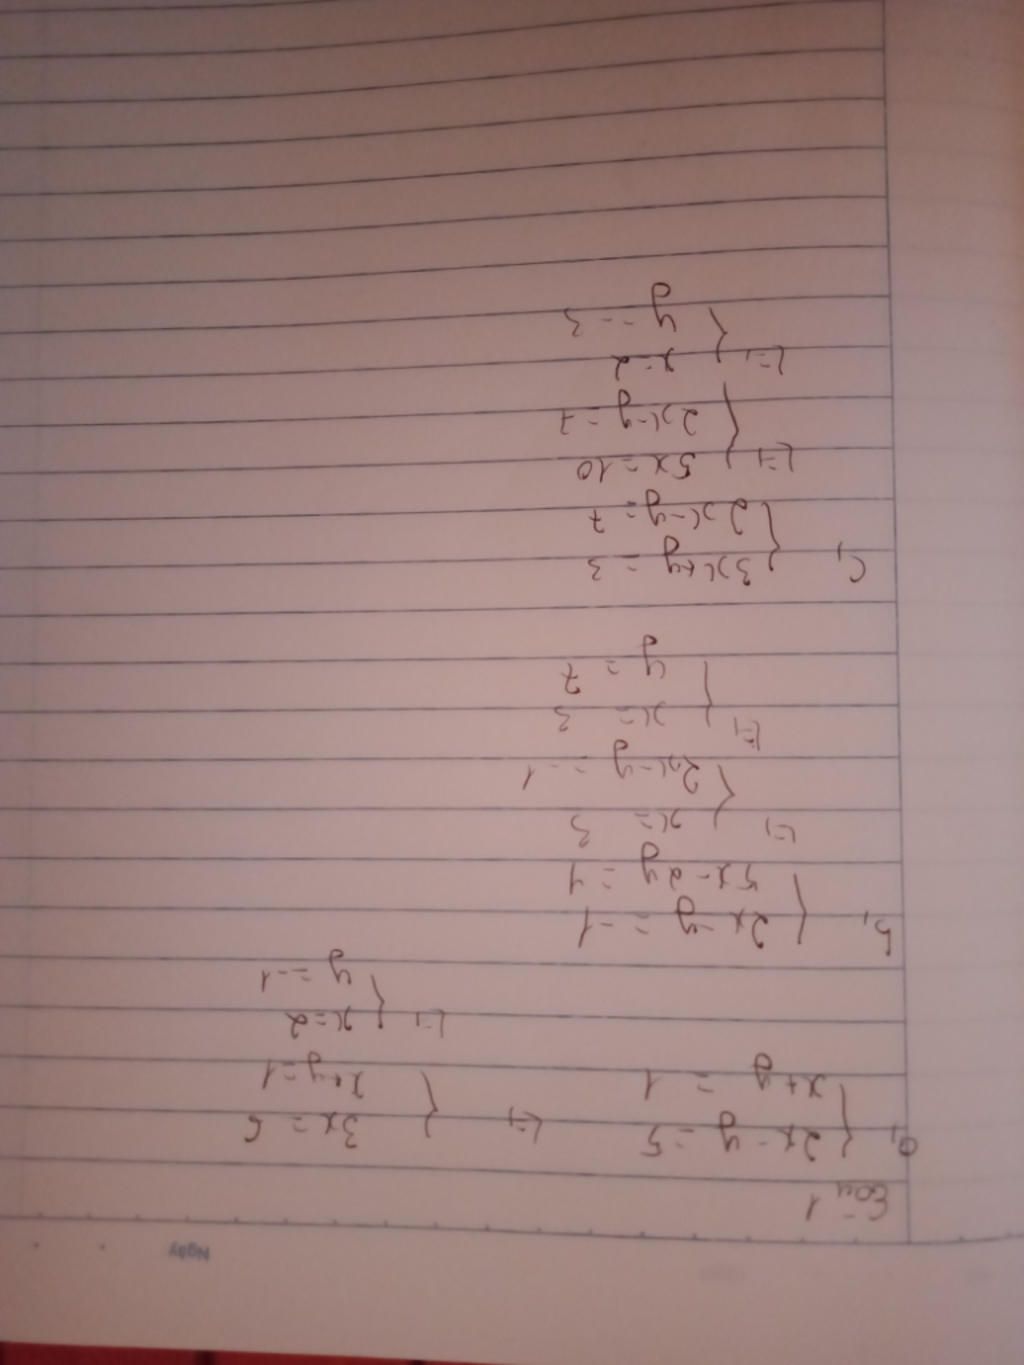 Ngày
Câu 1
a, { 2x - y = 5 <=> { 3x = 6
x + y = 1 x + y = 1
<=> { x = 2
y = -1
b, { 2x - y = -1
5x - 2y = 1
<=> { x = 3
2x - y = -1
<=> { x = 3
y = 7
c, { 3x + y = 3
2x - y = 7
<=> { 5x = 10
2x - y = 7
<=> { x = 2
y = -3